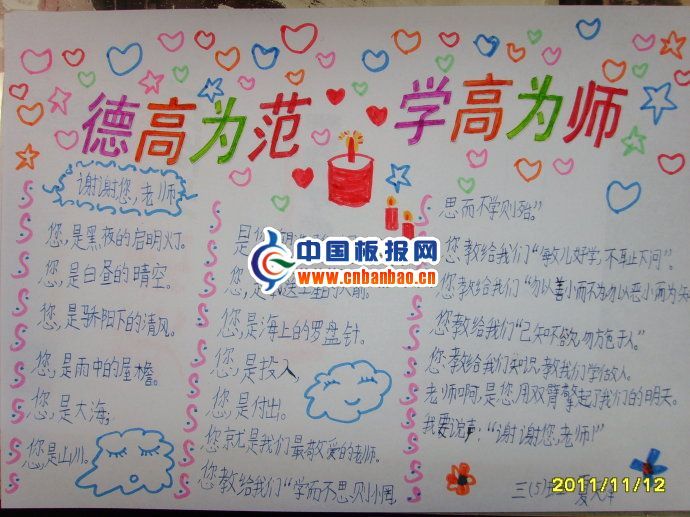 德高为范 学高为师
谢谢您,老师
您,是黑夜的启明灯。
您,是白昼的晴空。
您,是骄阳下的清风。
您,是雨中的屋檐。
您,是大海,
您是山川。
您,是海上的罗盘针。
您,是投入,
您,是付出。
您京尤是我们最敬爱的老师。
您教给我们“学而不思则小罔,
思而不学则殆”。
您教给我们“敏儿好学,不耻下问”。
您教给我们“勿以善小而不为勿以恶小而为夫
您教给我们“己知不欲,勿施于人。”
您教给我们知识,教我们学做人。
老师啊,是您用双臂擎起了我们的明天。
我要说声:“谢谢您,老师!”
三(5)
中国板报网
www.cnbanbao.cn
2011/11/12